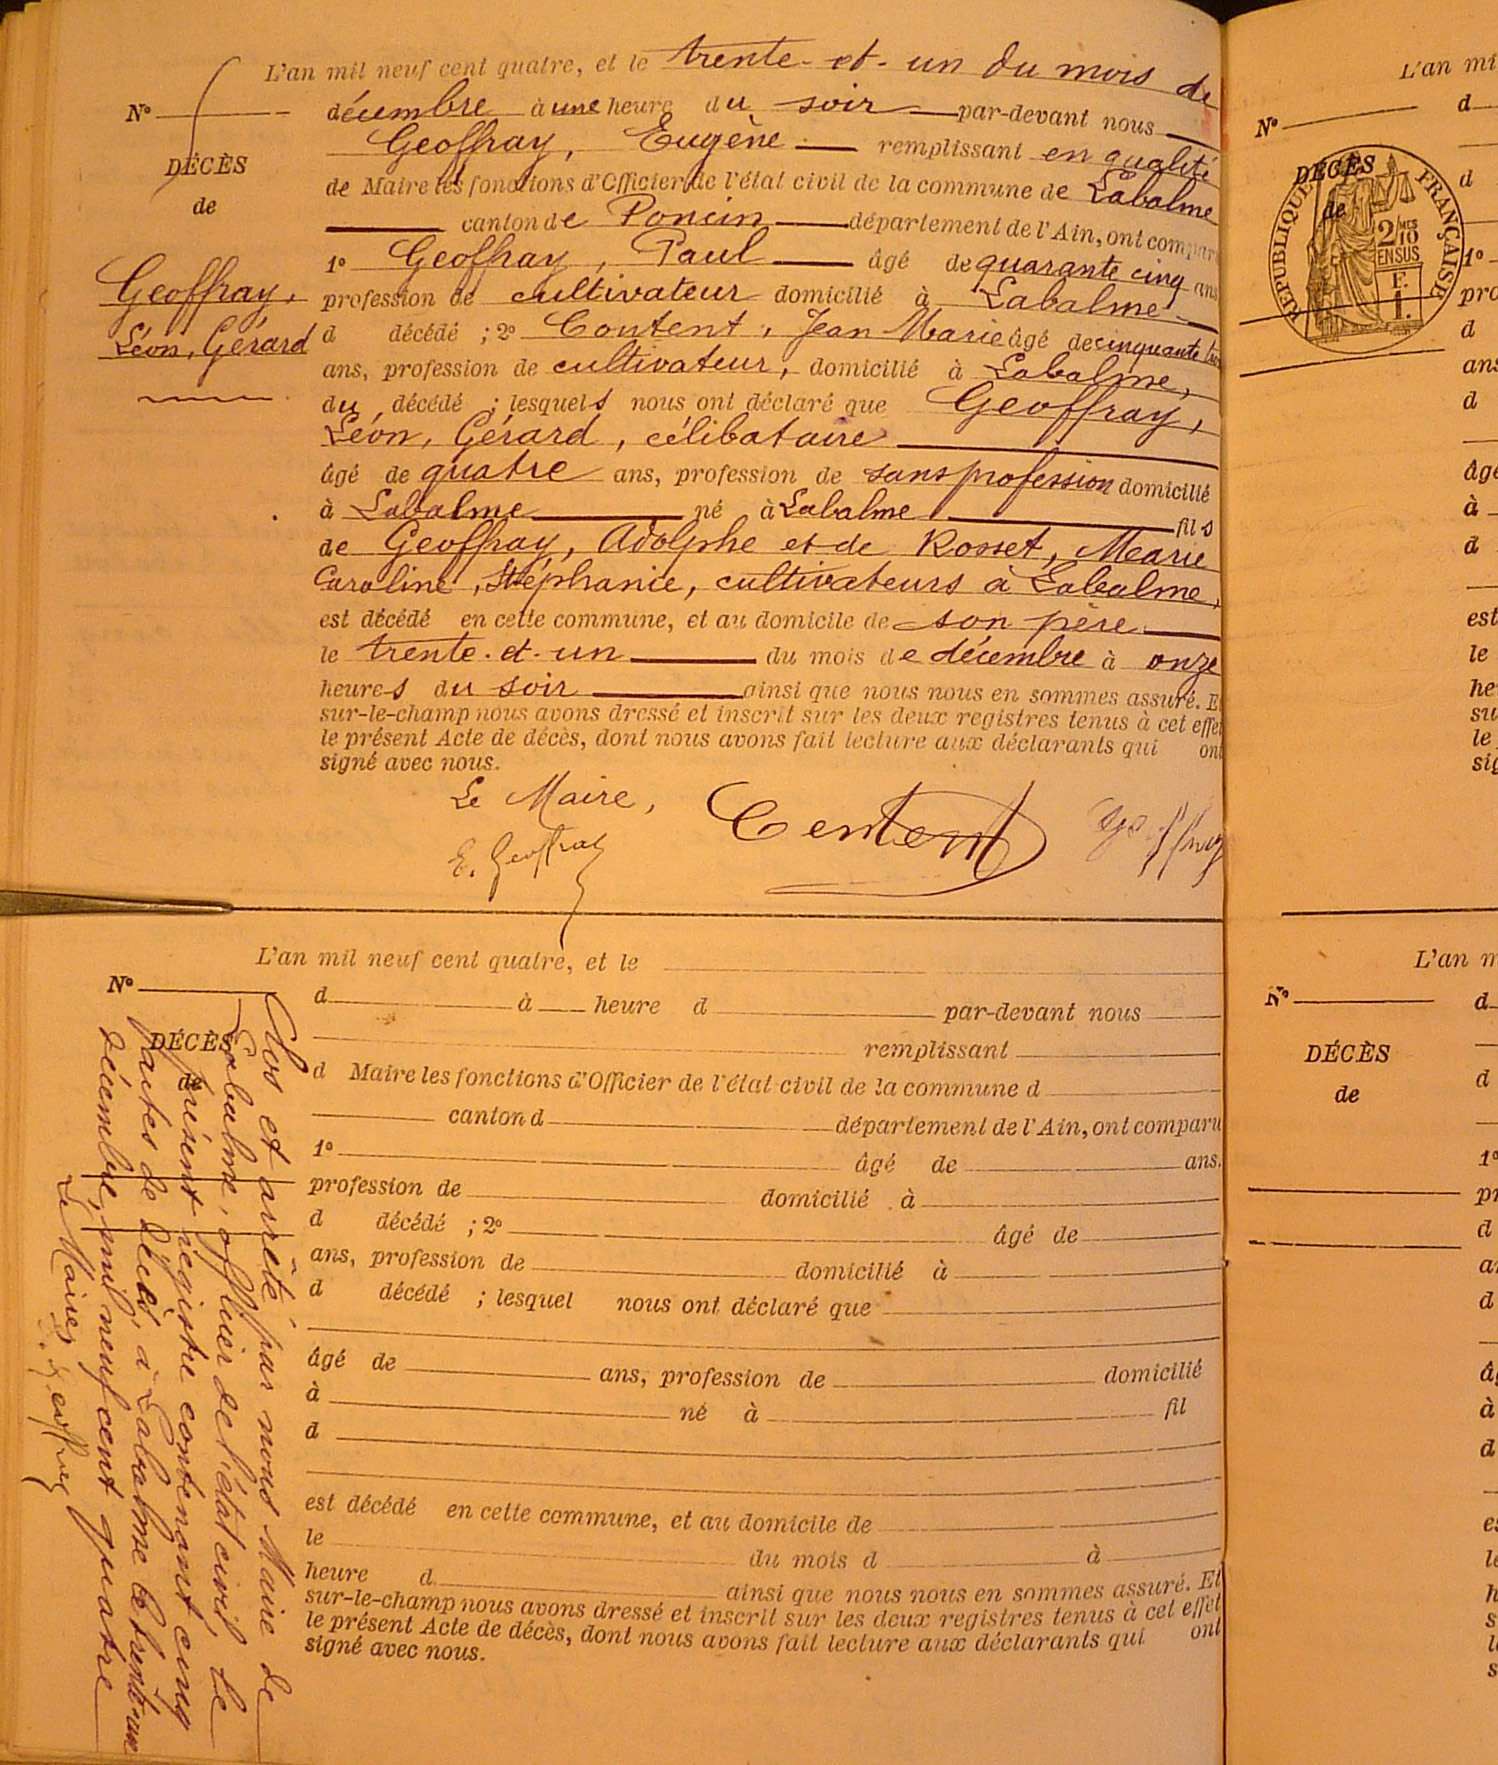 L'an mil neuf cent quatre, et le trente-et-un du mois de
N° décembre à une heure du soir par-devant nous
Geoffray, Eugène remplissant en qualité
DÉCÈS
de Maire les fonctions d'Officier de l'état civil de la commune de Labalme
de
canton de Poncin département de l'Ain, ont comparu
1° Geoffray, Paul âgé de quarante cinq ans
Geoffray,
profession de cultivateur domicilié à Labalme
Léon, Gérard
d décédé ; 2° Content, Jean Marie âgé de cinquante trois
ans, profession de cultivateur, domicilié à Labalme,
du décédé ; lesquels nous ont déclaré que Geoffray,
Léon, Gérard, célibataire
âgé de quatre ans, profession de sans profession domicilié
à Labalme né à Labalme fils
de Geoffray, Adolphe et de Rosset, Marie
Caroline, Stéphanie, cultivateurs à Labalme,
est décédé en cette commune, et au domicile de son père
le trente-et-un du mois de décembre à onze
heures du soir ainsi que nous nous en sommes assuré. Et
sur-le-champ nous avons dressé et inscrit sur les deux registres tenus à cet effet
le présent Acte de décès, dont nous avons fait lecture aux déclarants qui ont
signé avec nous.
Le Maire,
E. Geoffray
Content
L'an mil neuf cent quatre, et le
N°
d à heure d par-devant nous
DÉCÈS
remplissant
de
d Maire les fonctions d'Officier de l'état civil de la commune d
canton d département de l'Ain, ont comparu
1° âgé de ans.
profession de domicilié à
d décédé ; 2° âgé de
ans, profession de domicilié à
d décédé ; lesquel nous ont déclaré que
âgé de ans, profession de domicilié
à né à fil
d
est décédé en cette commune, et au domicile de
le du mois d à
heure d ainsi que nous nous en sommes assuré. Et
sur-le-champ nous avons dressé et inscrit sur les deux registres tenus à cet effet
le présent Acte de décès, dont nous avons fait lecture aux déclarants qui ont
signé avec nous.
Clos et arrêté par nous Maire de
Labalme, officier de l'état civil, le
présent registre contenant cinq
actes de décès, à Labalme le trente-un
décembre, mil neuf cent quatre
Le Maire,
E. Geoffray
L'an mi
N°
d
DÉCÈS
de
d
RÉPUBLIQUE FRANÇAISE
2/10 MES
EN SUS
F.
1.
1°
pro
d
ans
d
âgé
à
d
est
le
he
su
le
sig
L'an m
N°
d
DÉCÈS
de
d
1°
pr
d
a
d
â
à
d
e
l
h
s
l
s